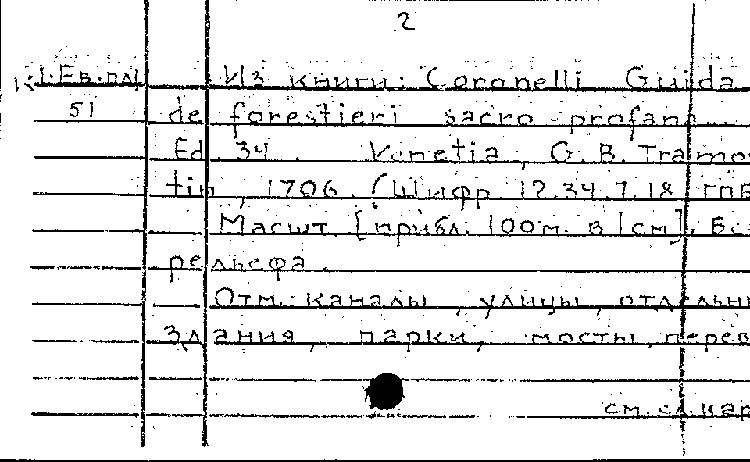 2
К.1.Ев.пл Из книги: Coronelli Guida
51 de forestieri sacro profano
Ed 34. Venetia, G. B. Tramon
tin, 1706. (Шифр 12.34.7.18 ГПБ
Масшт. [прибл. 100 м. в 1 см]. Бе
рельефа.
Отм. каналы, улицы, отдельн
здания, парки, мосты, перев
см. сл. кар